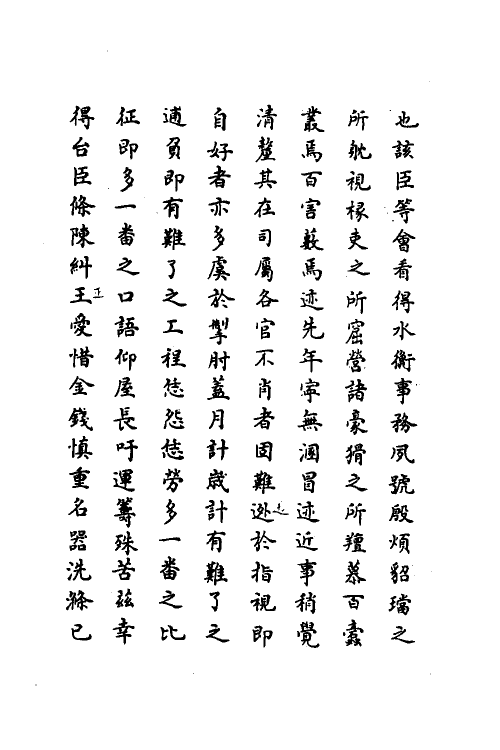 也該臣等會看得水衡事務夙號殷煩貂璫之
所躭視椽吏之所窟營諸豪猾之所羶慕百蠹
叢焉百害薮焉迹先年寜無溷冒迹近事稍覺
清釐其在司屬各官不肖者固難迯於指視即
自好者亦多虞於掣肘蓋月計歲計有難了之
逋負即有難了之工程恁怨恁勞多一番之比
征即多一番之口語仰屋長吁運籌殊苦玆幸
得台臣條陳糾王正愛惜金錢慎重名器洗滌已